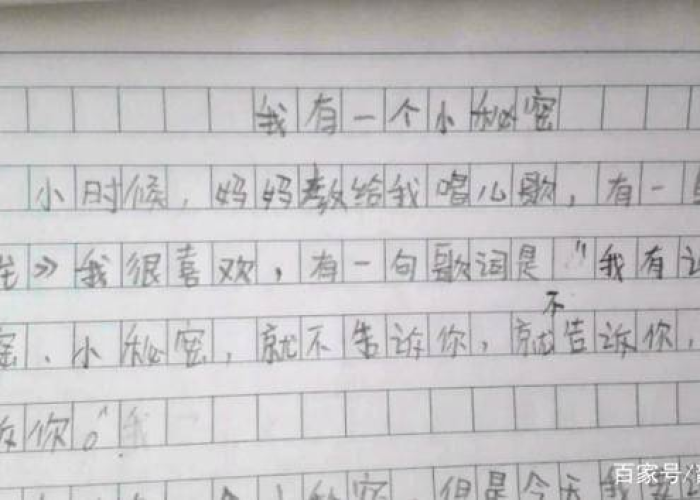 我有一个小秘密
小时候，妈妈教给我唱儿歌，有一
》我很喜欢，有一句歌词是"我有
、小秘密，就不告诉你，就不告诉你，
你。"我
个小秘密，但是今天
百家号/